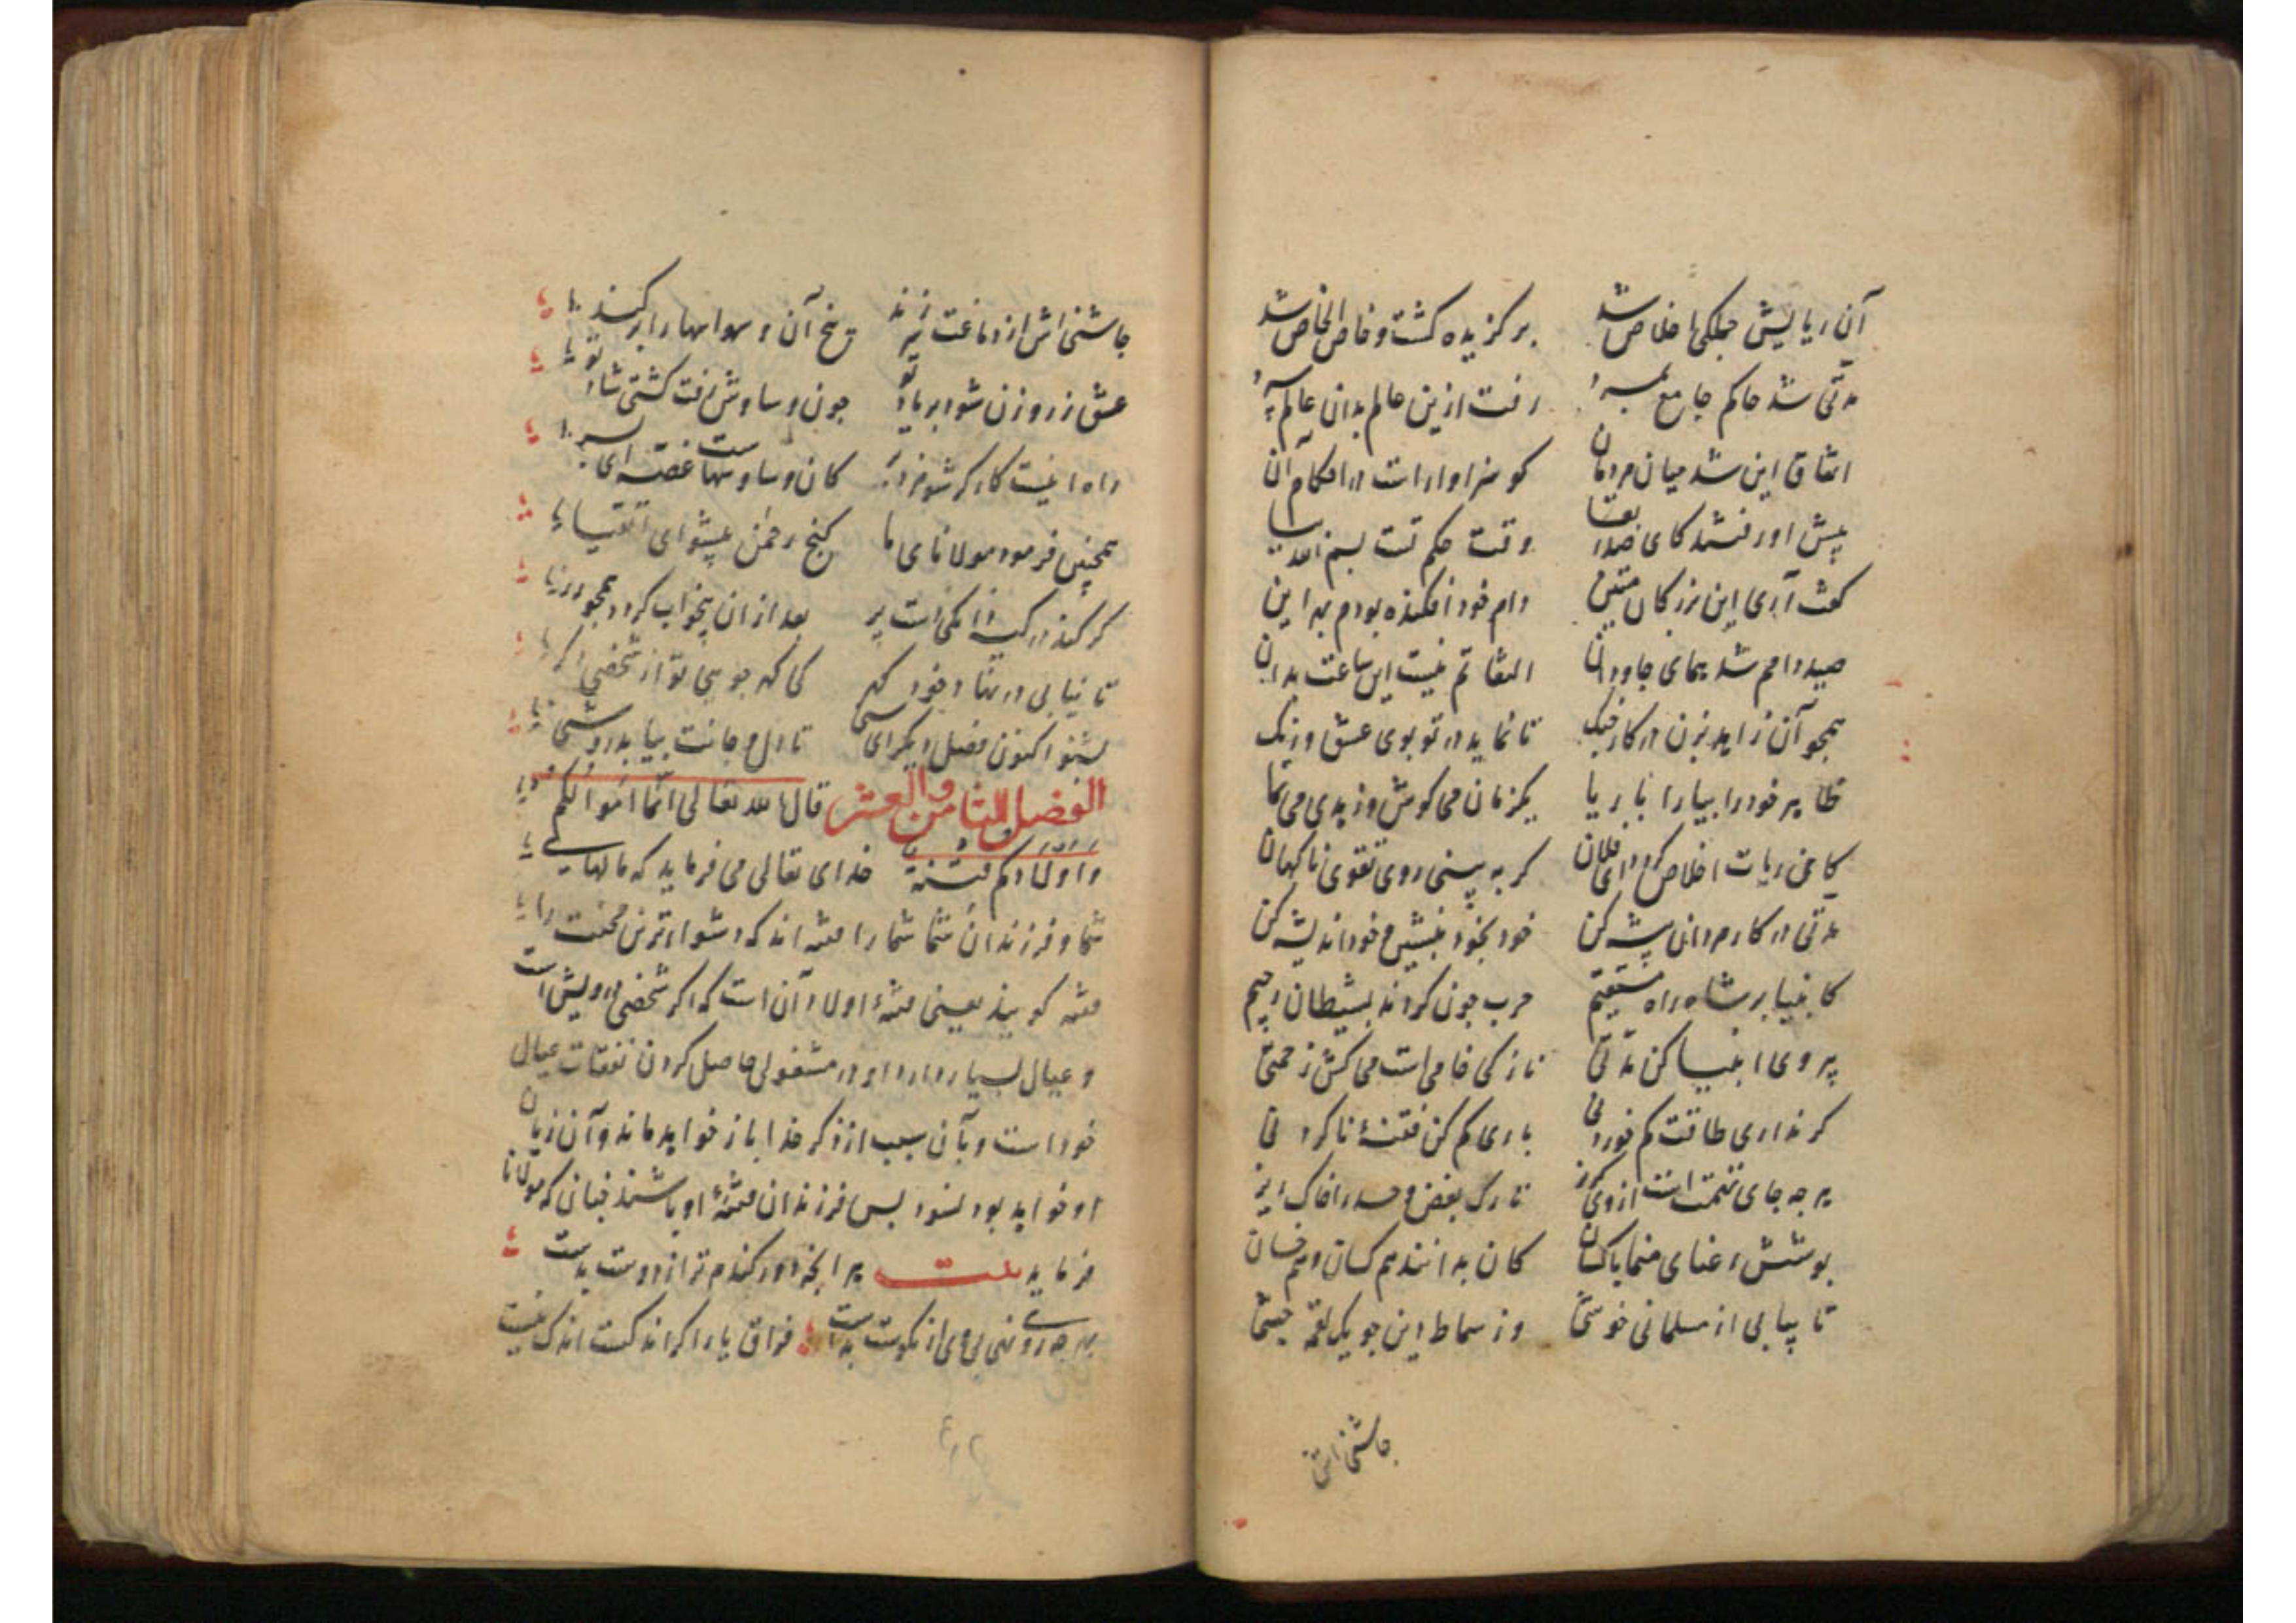 آن ریایش جملگی اخلاص شد برگزیده گشت و خاص الخاص شد
مدتی شد حاکم جامع بمرد رفت ازین عالم بدان عالم سپرد
اتفاق این شد میان مردمان کو سزاوارست در احکام آن
پیش او رفتند کای صدر وقت حکم تست بسم الله بیا
گفت آری این بزرگان متین دام خود افکنده بودم بهر این
صید دامم شد همای جاودان التفاتم نیست این ساعت بدان
همچو آن زاهد بزن در کار چنگ تا نماید در تو بوی عشق و رنگ
ظاهر خود را بیارا با ریا یکزمان می کوش و زهدی می نما
کاین ریات اخلاص گردد ای فلان گر به بینی روی تقوی ناگهان
مدتی در کار مردان پیشه کن خود بخود بنشین و خود اندیشه کن
کانبیا بر شاه راه مستقیم حرب چون کردند بشیطان رجیم
پیروی انبیا کن مدتی نازکی خامی است می کش زحمتی
گر نداری طاقت کم خوردنی باری کم کن فتنهٔ ناکردنی
هر چه جای تهمت است از وی گریز تارک بغض و حسد را خاک بیز
پوشش رعنای منما با کسان کان بدانند هم کسان و هم خسان
تا بیابی از مسلمانی خوشی وز سماط این چو یک لقمه چشی
چاشنی اش
چاشنی اش از دماغت بر زند بیخ آن وسواسها را بر کند
عشق زر و زن شود بر باد تو چون وساوس رفت گشتی شاد تو
راه اینست کار گر شو مزد بر کان وساوسهاست غصه ای پسر
همچنین فرمود مولانای ما گنج رحمن پیشوای اتقیا
گر کند در کیسه دانگی ات بعد از آن بیخواب گردد همچو
تا نیابی در تقا خود که که جویی تو از شخصی دگر
بشنو اکنون فصل دیگر ای سنی تا دل و جانت بیابد روشنی
الفصل الثامن و العشر قال الله تعالی انما اموالکم
و اولادکم فتنة خدای تعالی می فرماید که مالهای
شما و فرزندان شما شما را فتنه اند که دشوارترین محنت را
فتنه گویند یعنی فتنهٔ اولاد آن است که اگر شخصی درویش است
و عیال بسیار دارد او در مشغولی حاصل کردن نفقات عیال
خود است و بآن سبب از ذکر خدا باز خواهد ماند و آن زیان
او خواهد بود نسود بس فرزندان فتنهٔ او باشند چنانی که مولانا
فرماید بیت هر آنچه دور کند مر ترا از دوست بدست
بهر چه روی نهی بی وی ار نکوست بدست فراق یار اگر اندکست اندک نیست